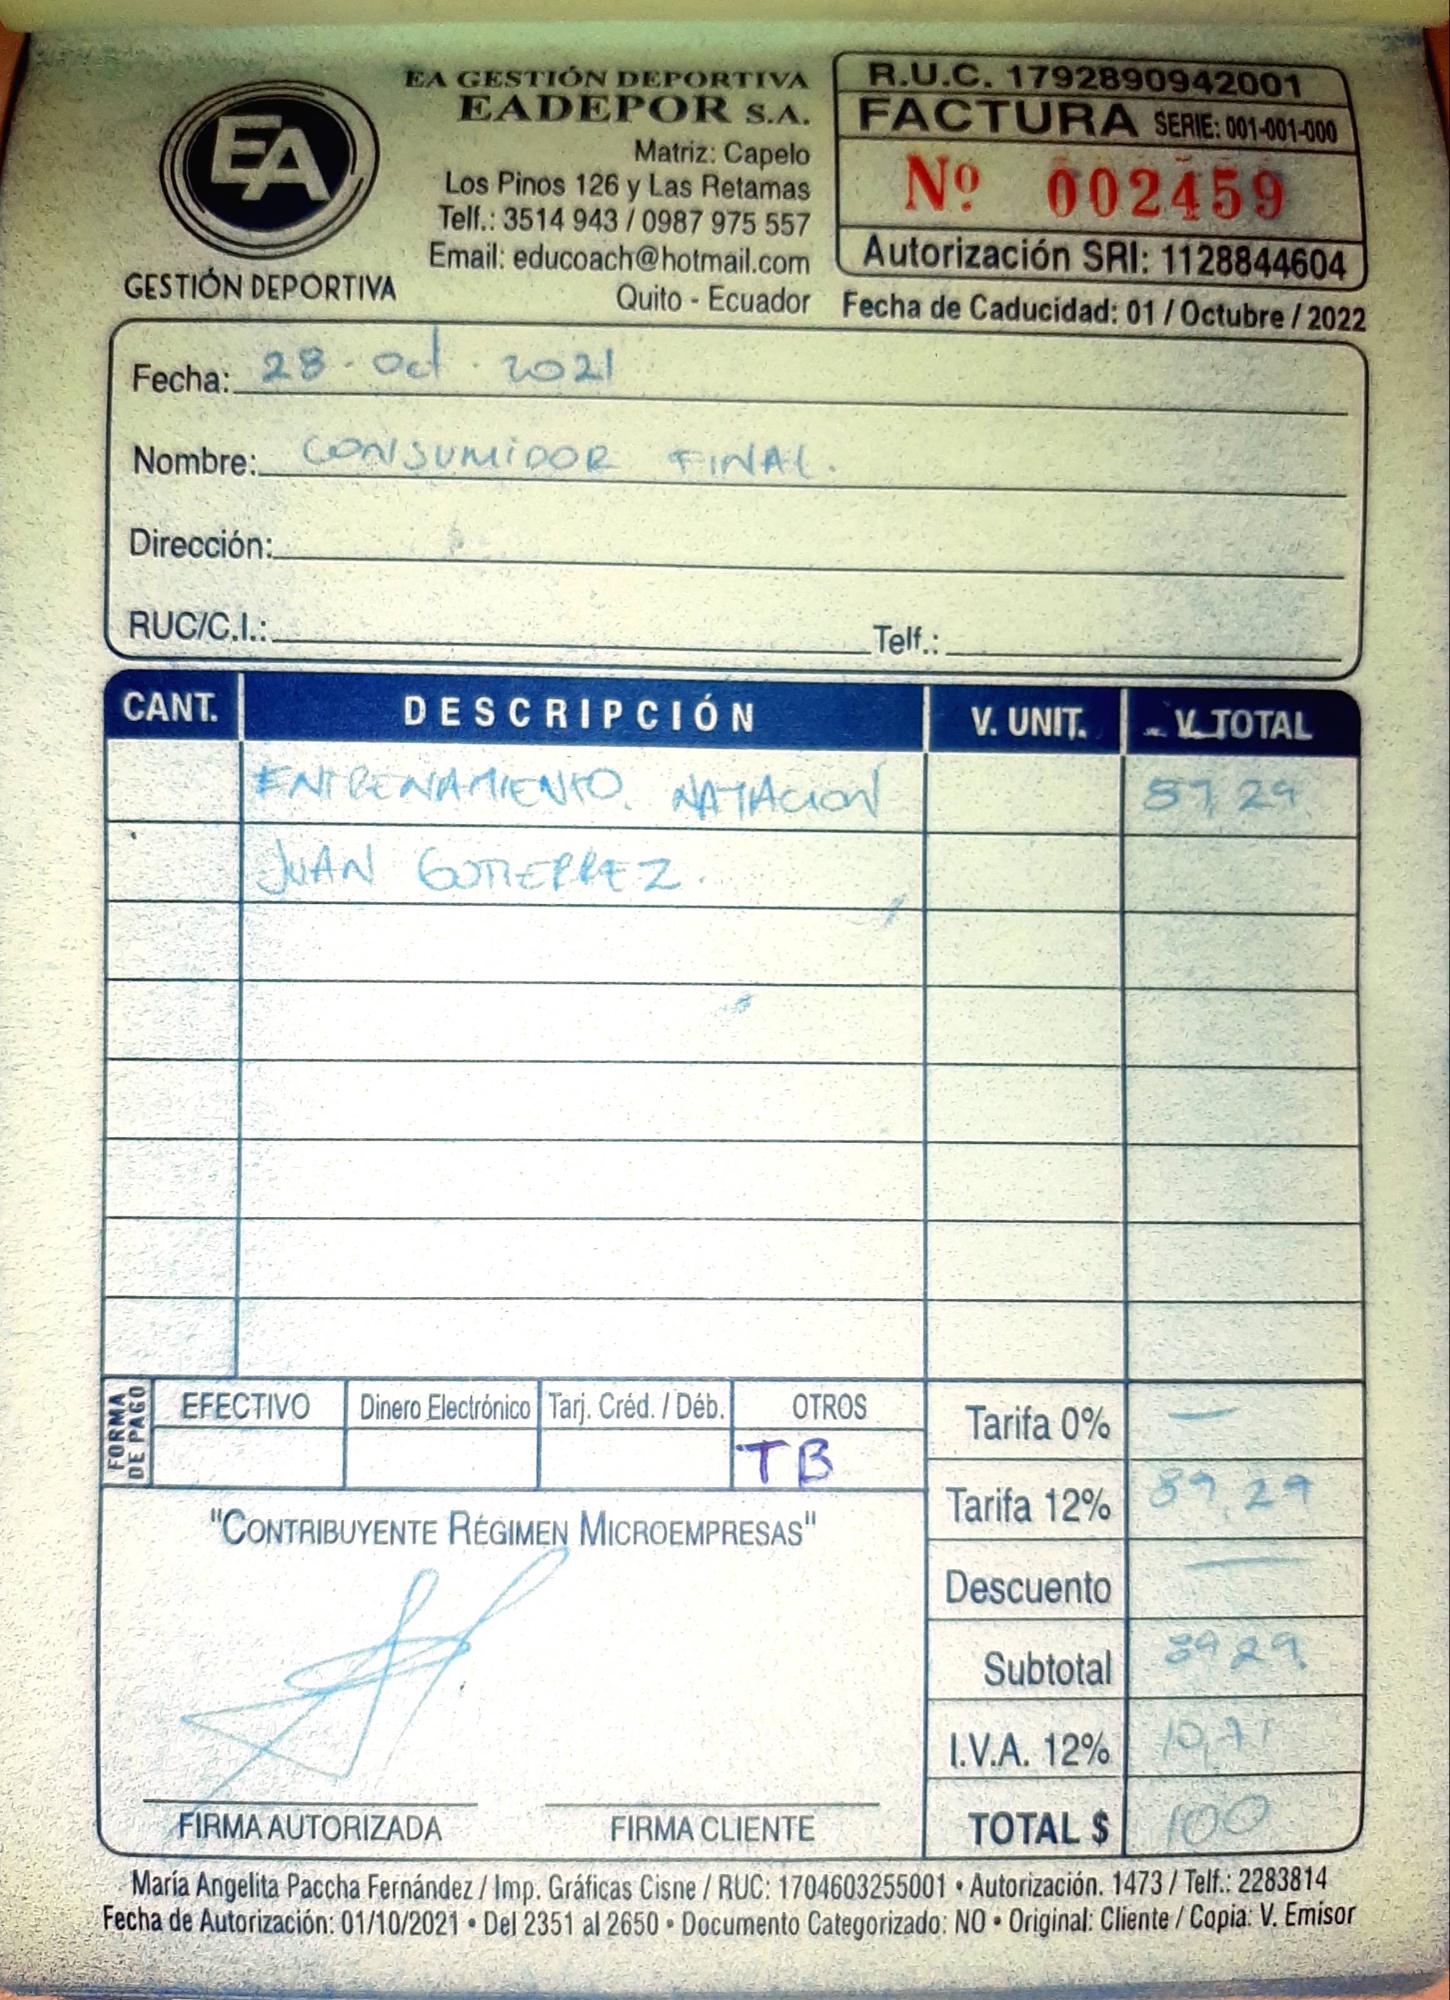 EA
GESTIÓN DEPORTIVA
EA GESTIÓN DEPORTIVA
EADEPOR S.A.
Matriz: Capelo
Los Pinos 126 y Las Retamas
Telf.: 3514 943 / 0987 975 557
Email: educoach@hotmail.com
Quito - Ecuador
R.U.C. 1792890942001
FACTURA SERIE: 001-001-000
Nº 002459
Autorización SRI: 1128844604
Fecha de Caducidad: 01 / Octubre / 2022
Fecha: 28 . Oct . 2021
Nombre: CONSUMIDOR FINAL.
Dirección:
RUC/C.I.: Telf.:
CANT. DESCRIPCIÓN V. UNIT. V. TOTAL
ENTRENAMIENTO. NATACION 89,29
JUAN GUTIERREZ.
FORMA DE PAGO
EFECTIVO Dinero Electrónico Tarj. Créd. / Déb. OTROS
TB
Tarifa 0% —
Tarifa 12% 89,29
Descuento —
Subtotal 89,29
I.V.A. 12% 10,71
TOTAL $ 100
"CONTRIBUYENTE RÉGIMEN MICROEMPRESAS"
FIRMA AUTORIZADA FIRMA CLIENTE
María Angelita Paccha Fernández / Imp. Gráficas Cisne / RUC: 1704603255001 • Autorización. 1473 / Telf.: 2283814
Fecha de Autorización: 01/10/2021 • Del 2351 al 2650 • Documento Categorizado: NO • Original: Cliente / Copia: V. Emisor